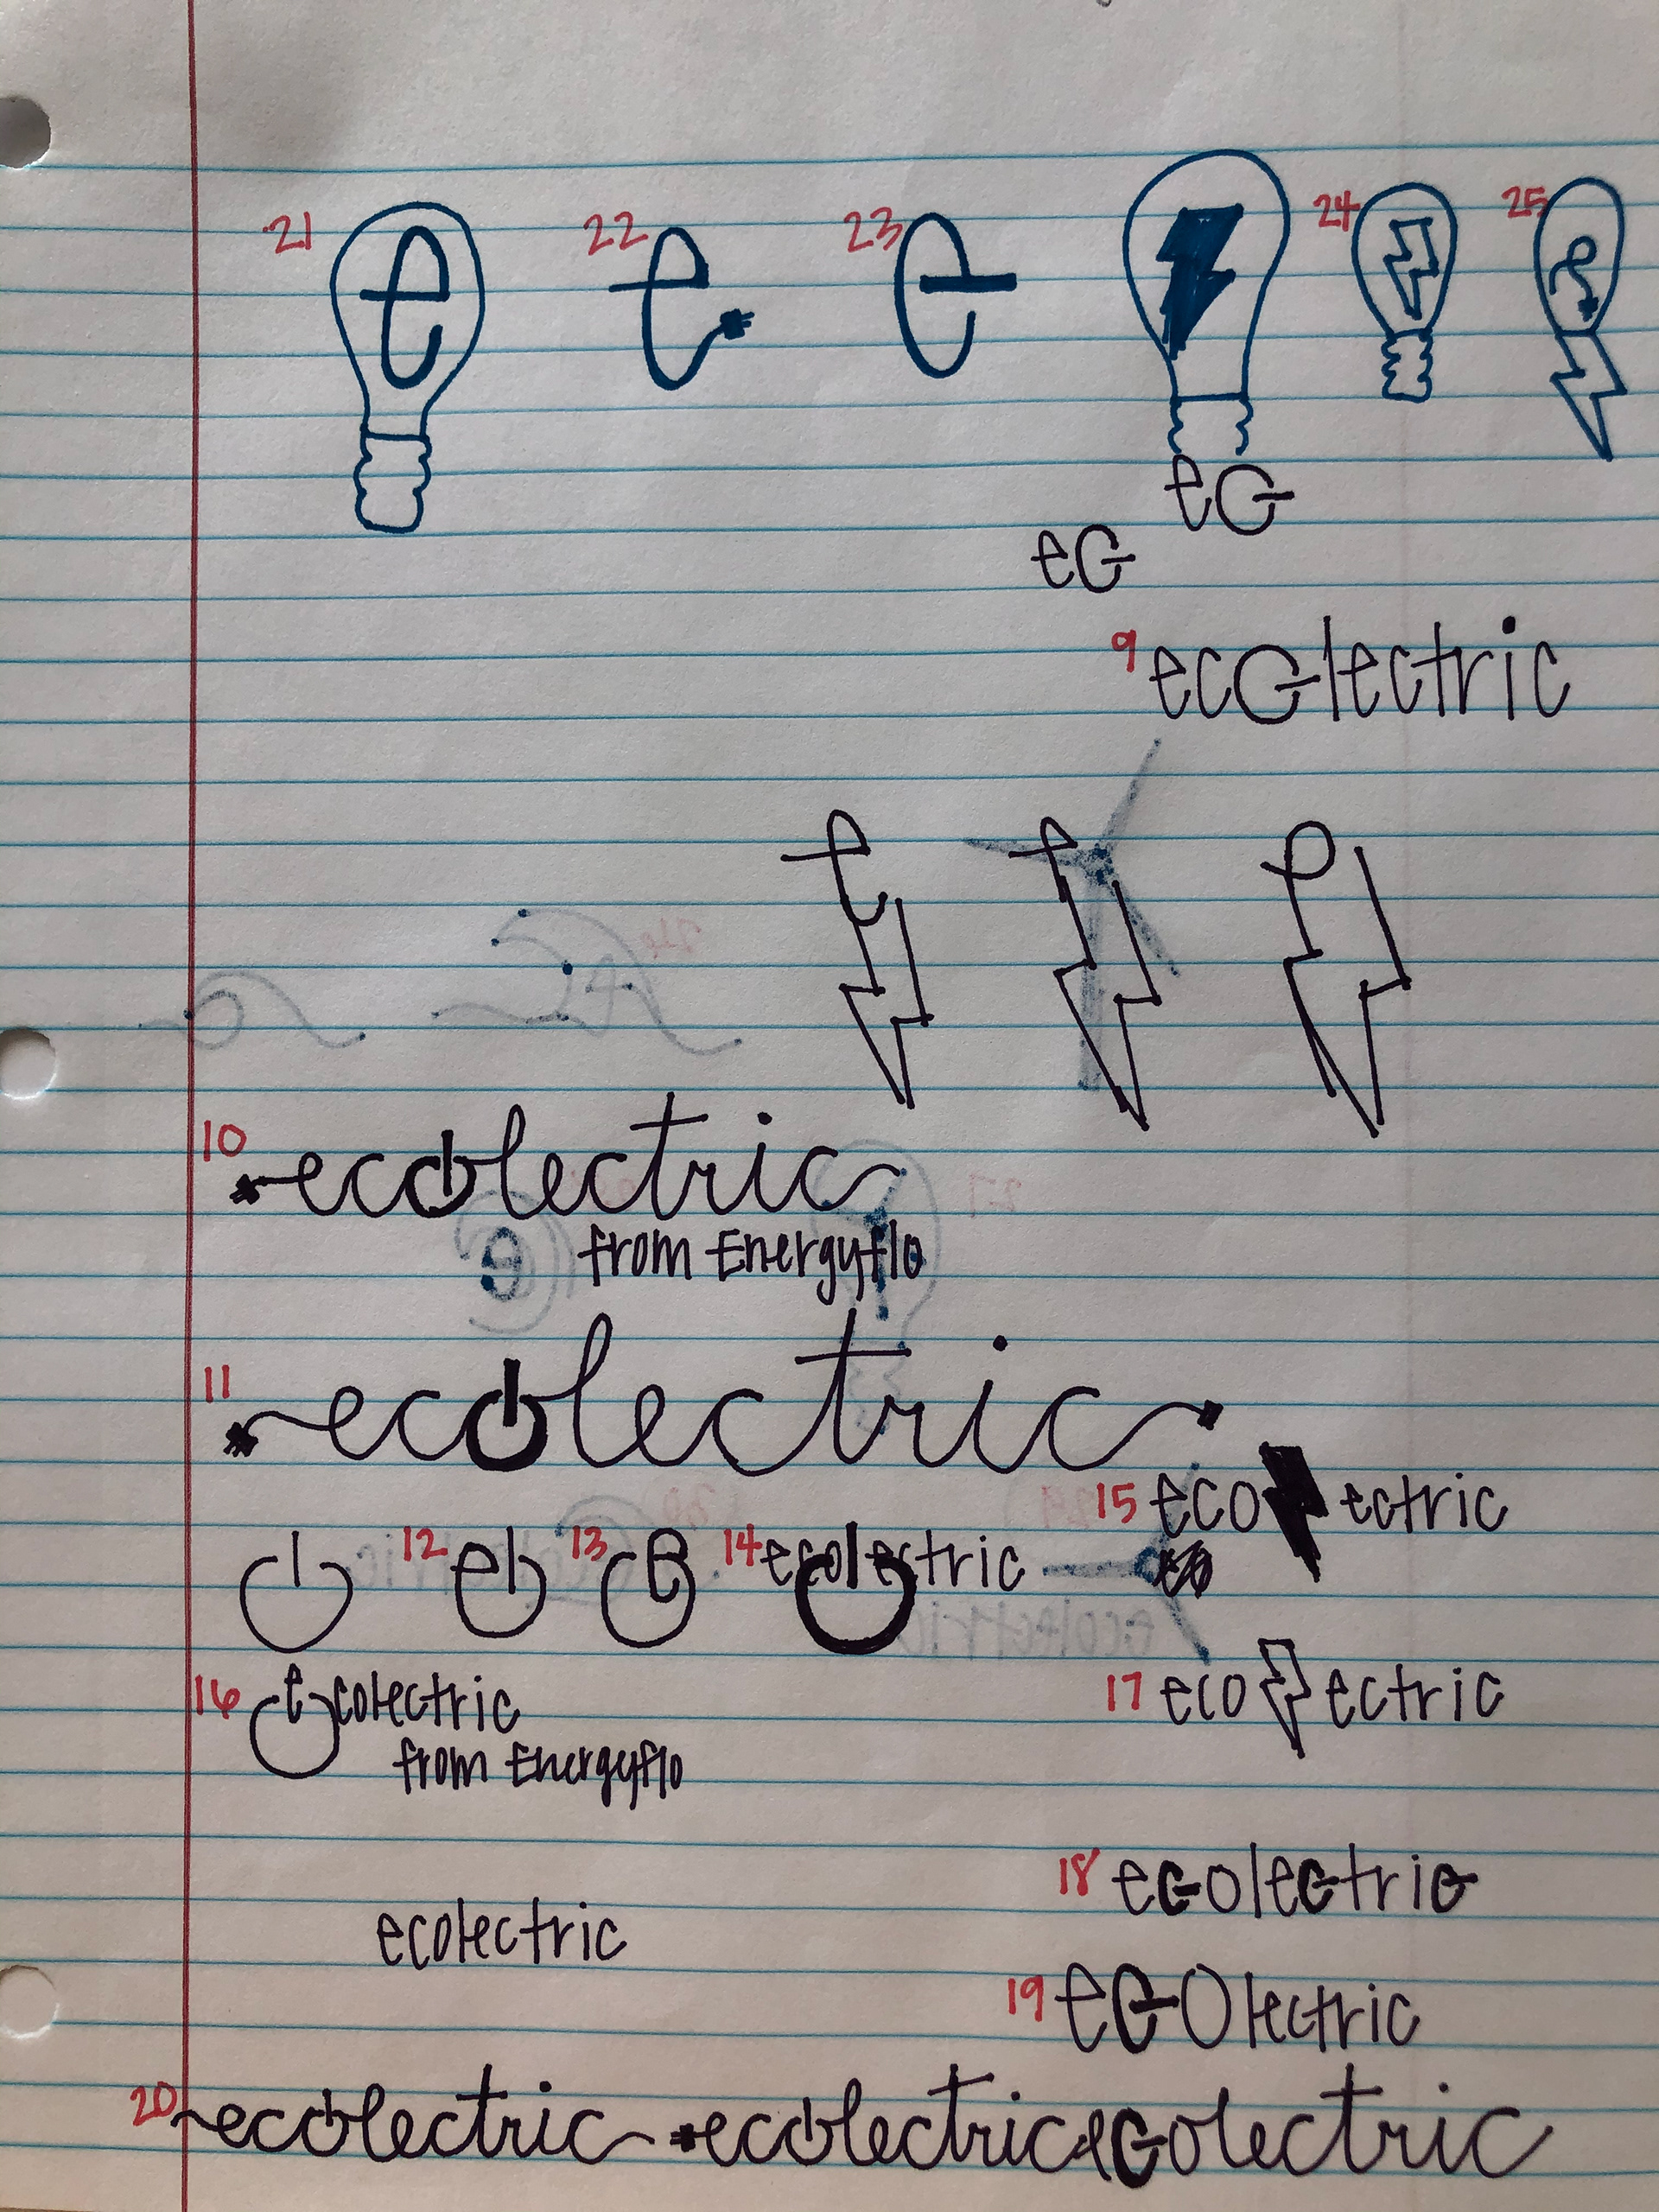 21 e 22 e 23 e 24 25 e
eG
eG
9 ecolectric
e e e
10 ecolectric
from Energyflo
11 ecolectric
15 eco ectric
12 e 13 e 14 ecolectric
16 ecolectric
from Energyflo
17 eco ectric
18 ecolectric
ecolectric
19 ecolectric
20 ecolectric ecolectric ecolectric